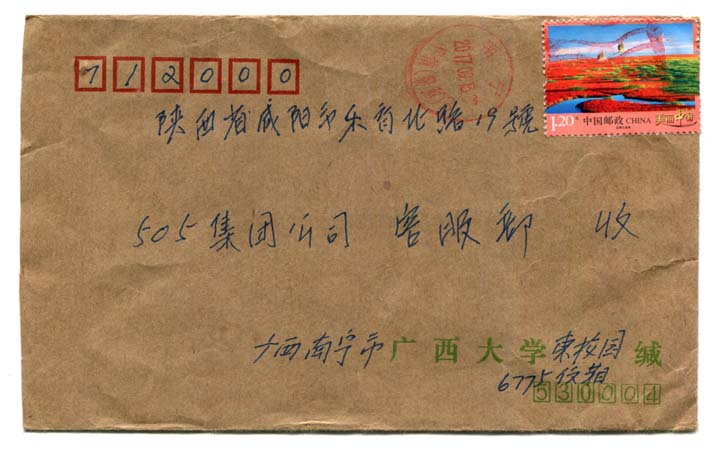 712000
2017.02.15
1.20元 中国邮政 CHINA 美丽中国
陕西省咸阳市乐育北路19號
505集团公司 客服部 收
广西南宁市 广西大学 東校园 缄
6775信箱
530004